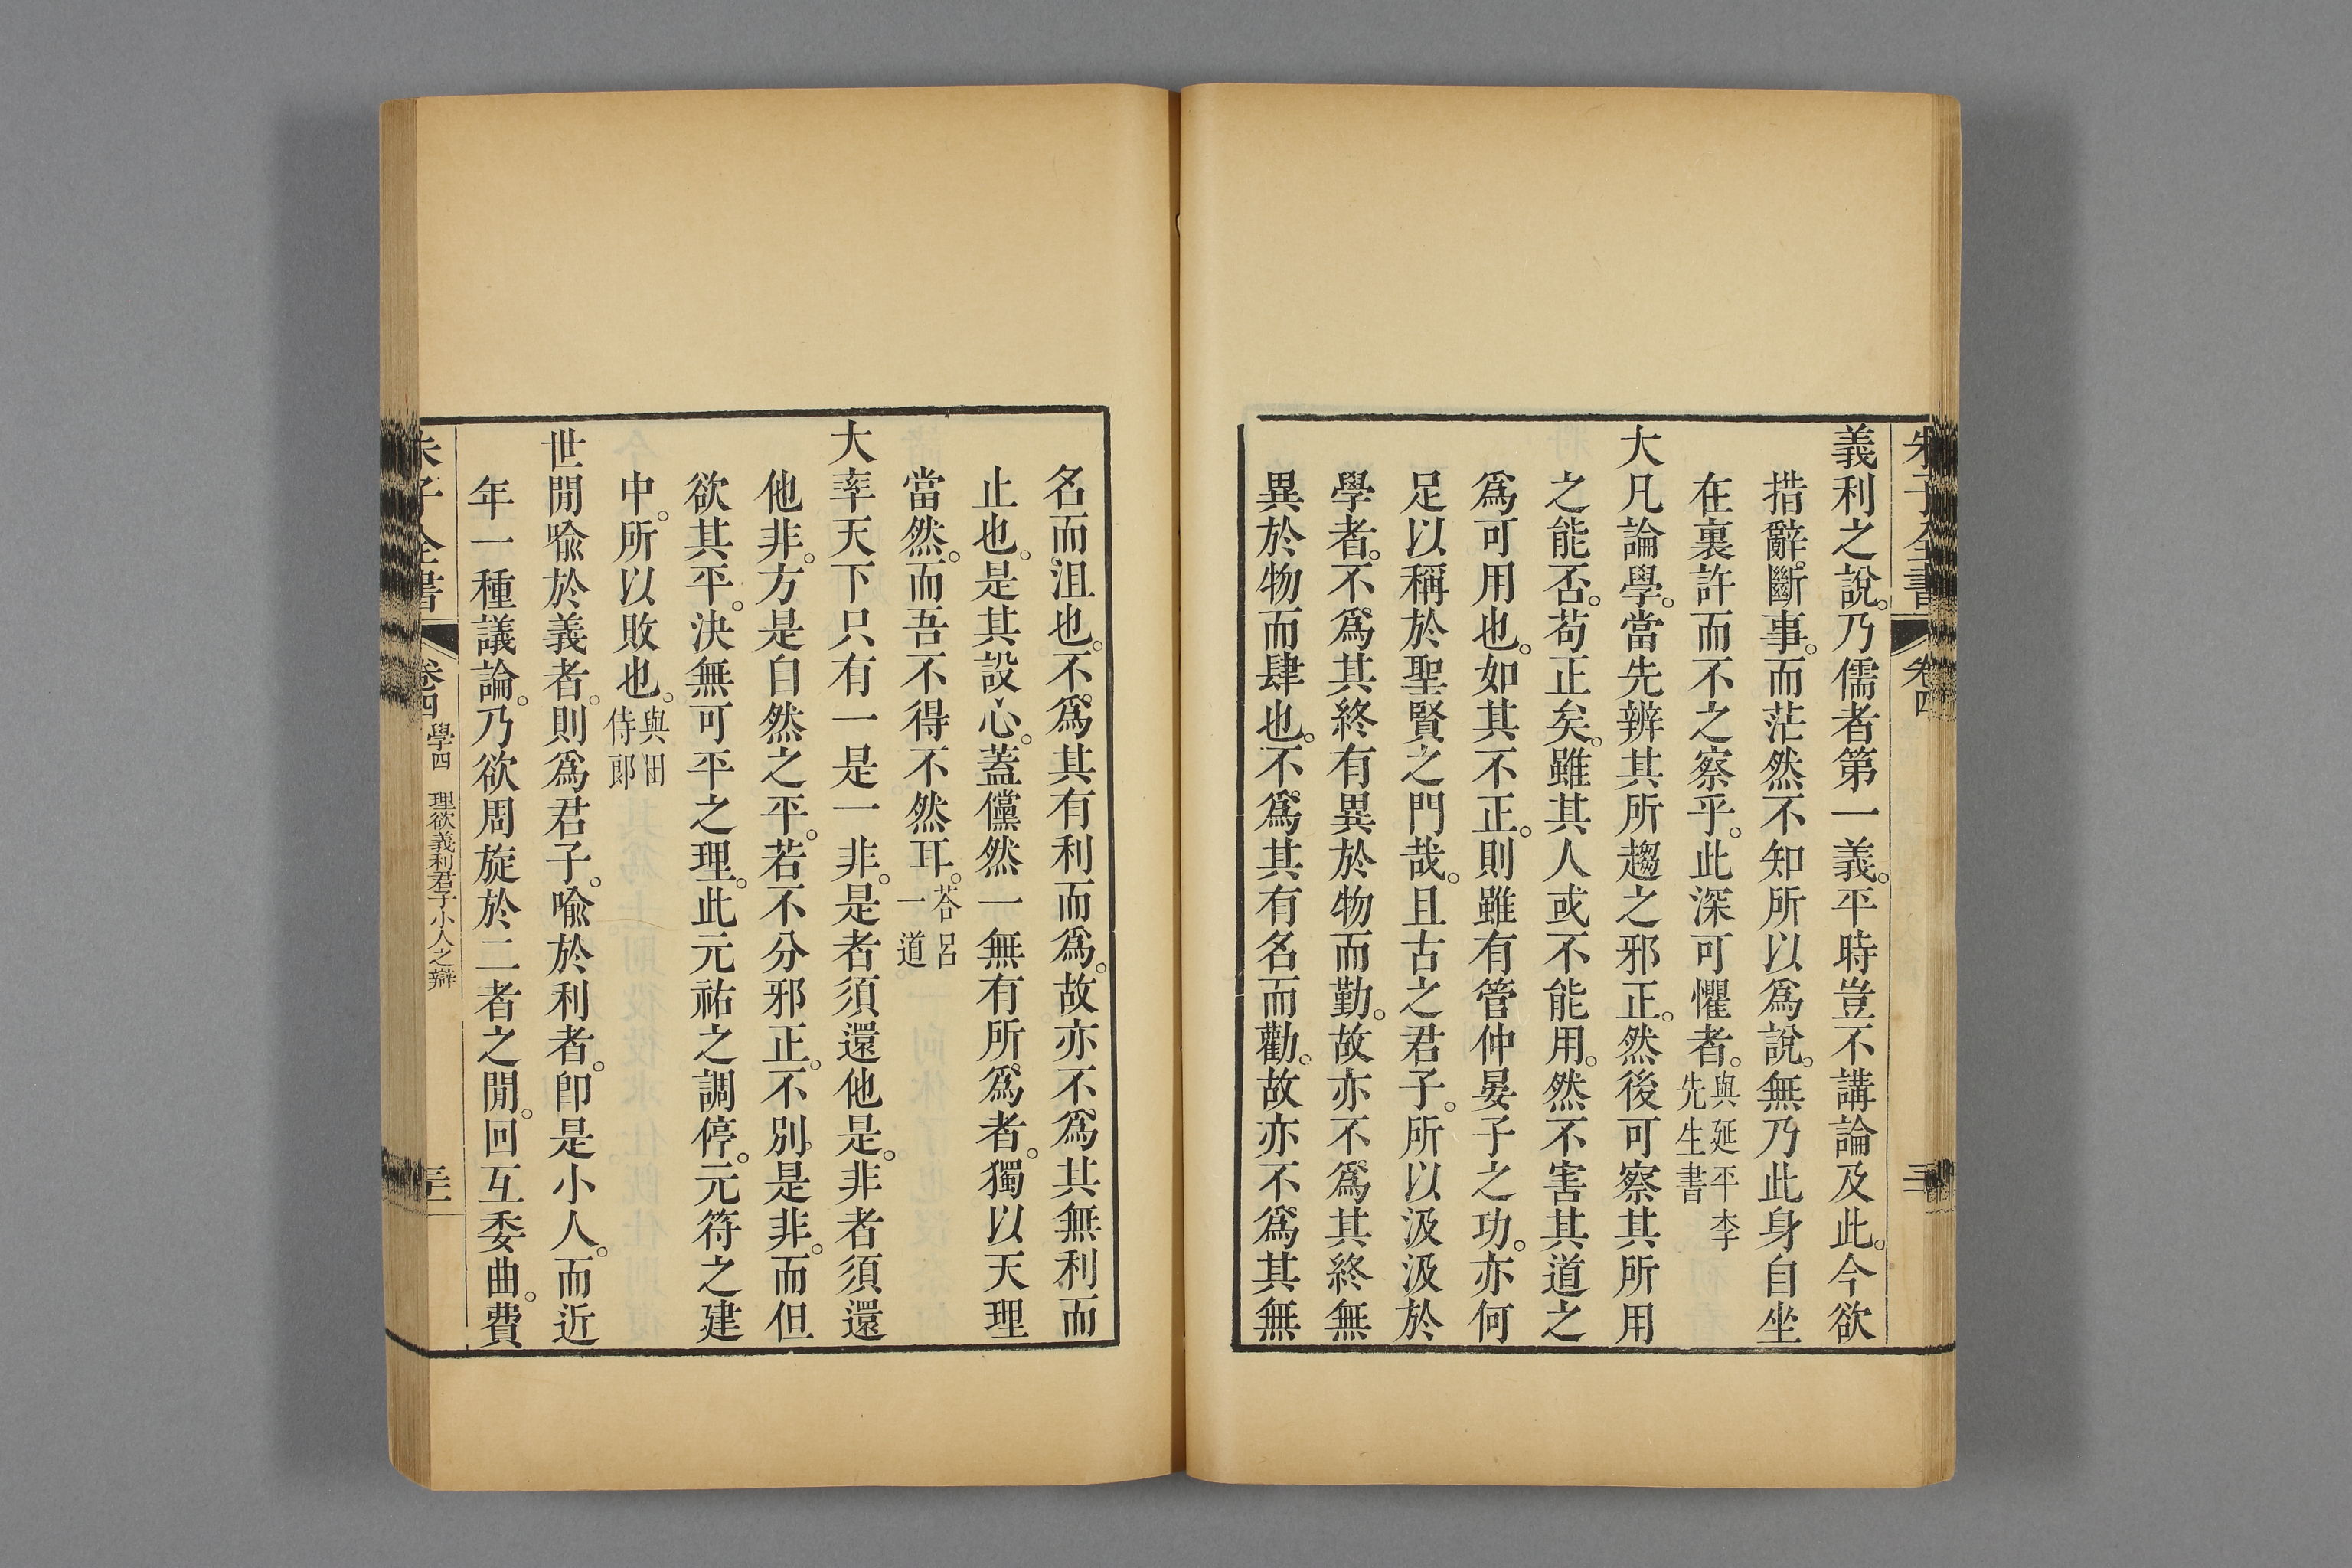 義利之說。乃儒者第一義。平時豈不講論及此。今欲
措辭斷事。而茫然不知所以爲說。無乃此身自坐
在裏許而不之察乎。此深可懼者。與延平李先生書
大凡論學。當先辨其所趨之邪正。然後可察其所用
之能否。苟正矣。雖其人或不能用。然不害其道之
爲可用也。如其不正。則雖有管仲晏子之功。亦何
足以稱於聖賢之門哉。且古之君子。所以汲汲於
學者。不爲其終有異於物而勤。故亦不爲其終無
異於物而肆也。不爲其有名而勸。故亦不爲其無
名而沮也。不爲其有利而爲。故亦不爲其無利而
止也。是其設心。蓋儻然一無有所爲者。獨以天理
當然。而吾不得不然耳。荅呂一道
大率天下只有一是一非。是者須還他是。非者須還
他非。方是自然之平。若不分邪正。不別是非。而但
欲其平。決無可平之理。此元祐之調停。元符之建
中。所以敗也。與田侍郞
世閒喩於義者。則爲君子。喩於利者。卽是小人。而近
年一種議論。乃欲周旋於二者之閒。回互委曲。費
朱子全書 卷四 學四 理欲義利君子小人之辯